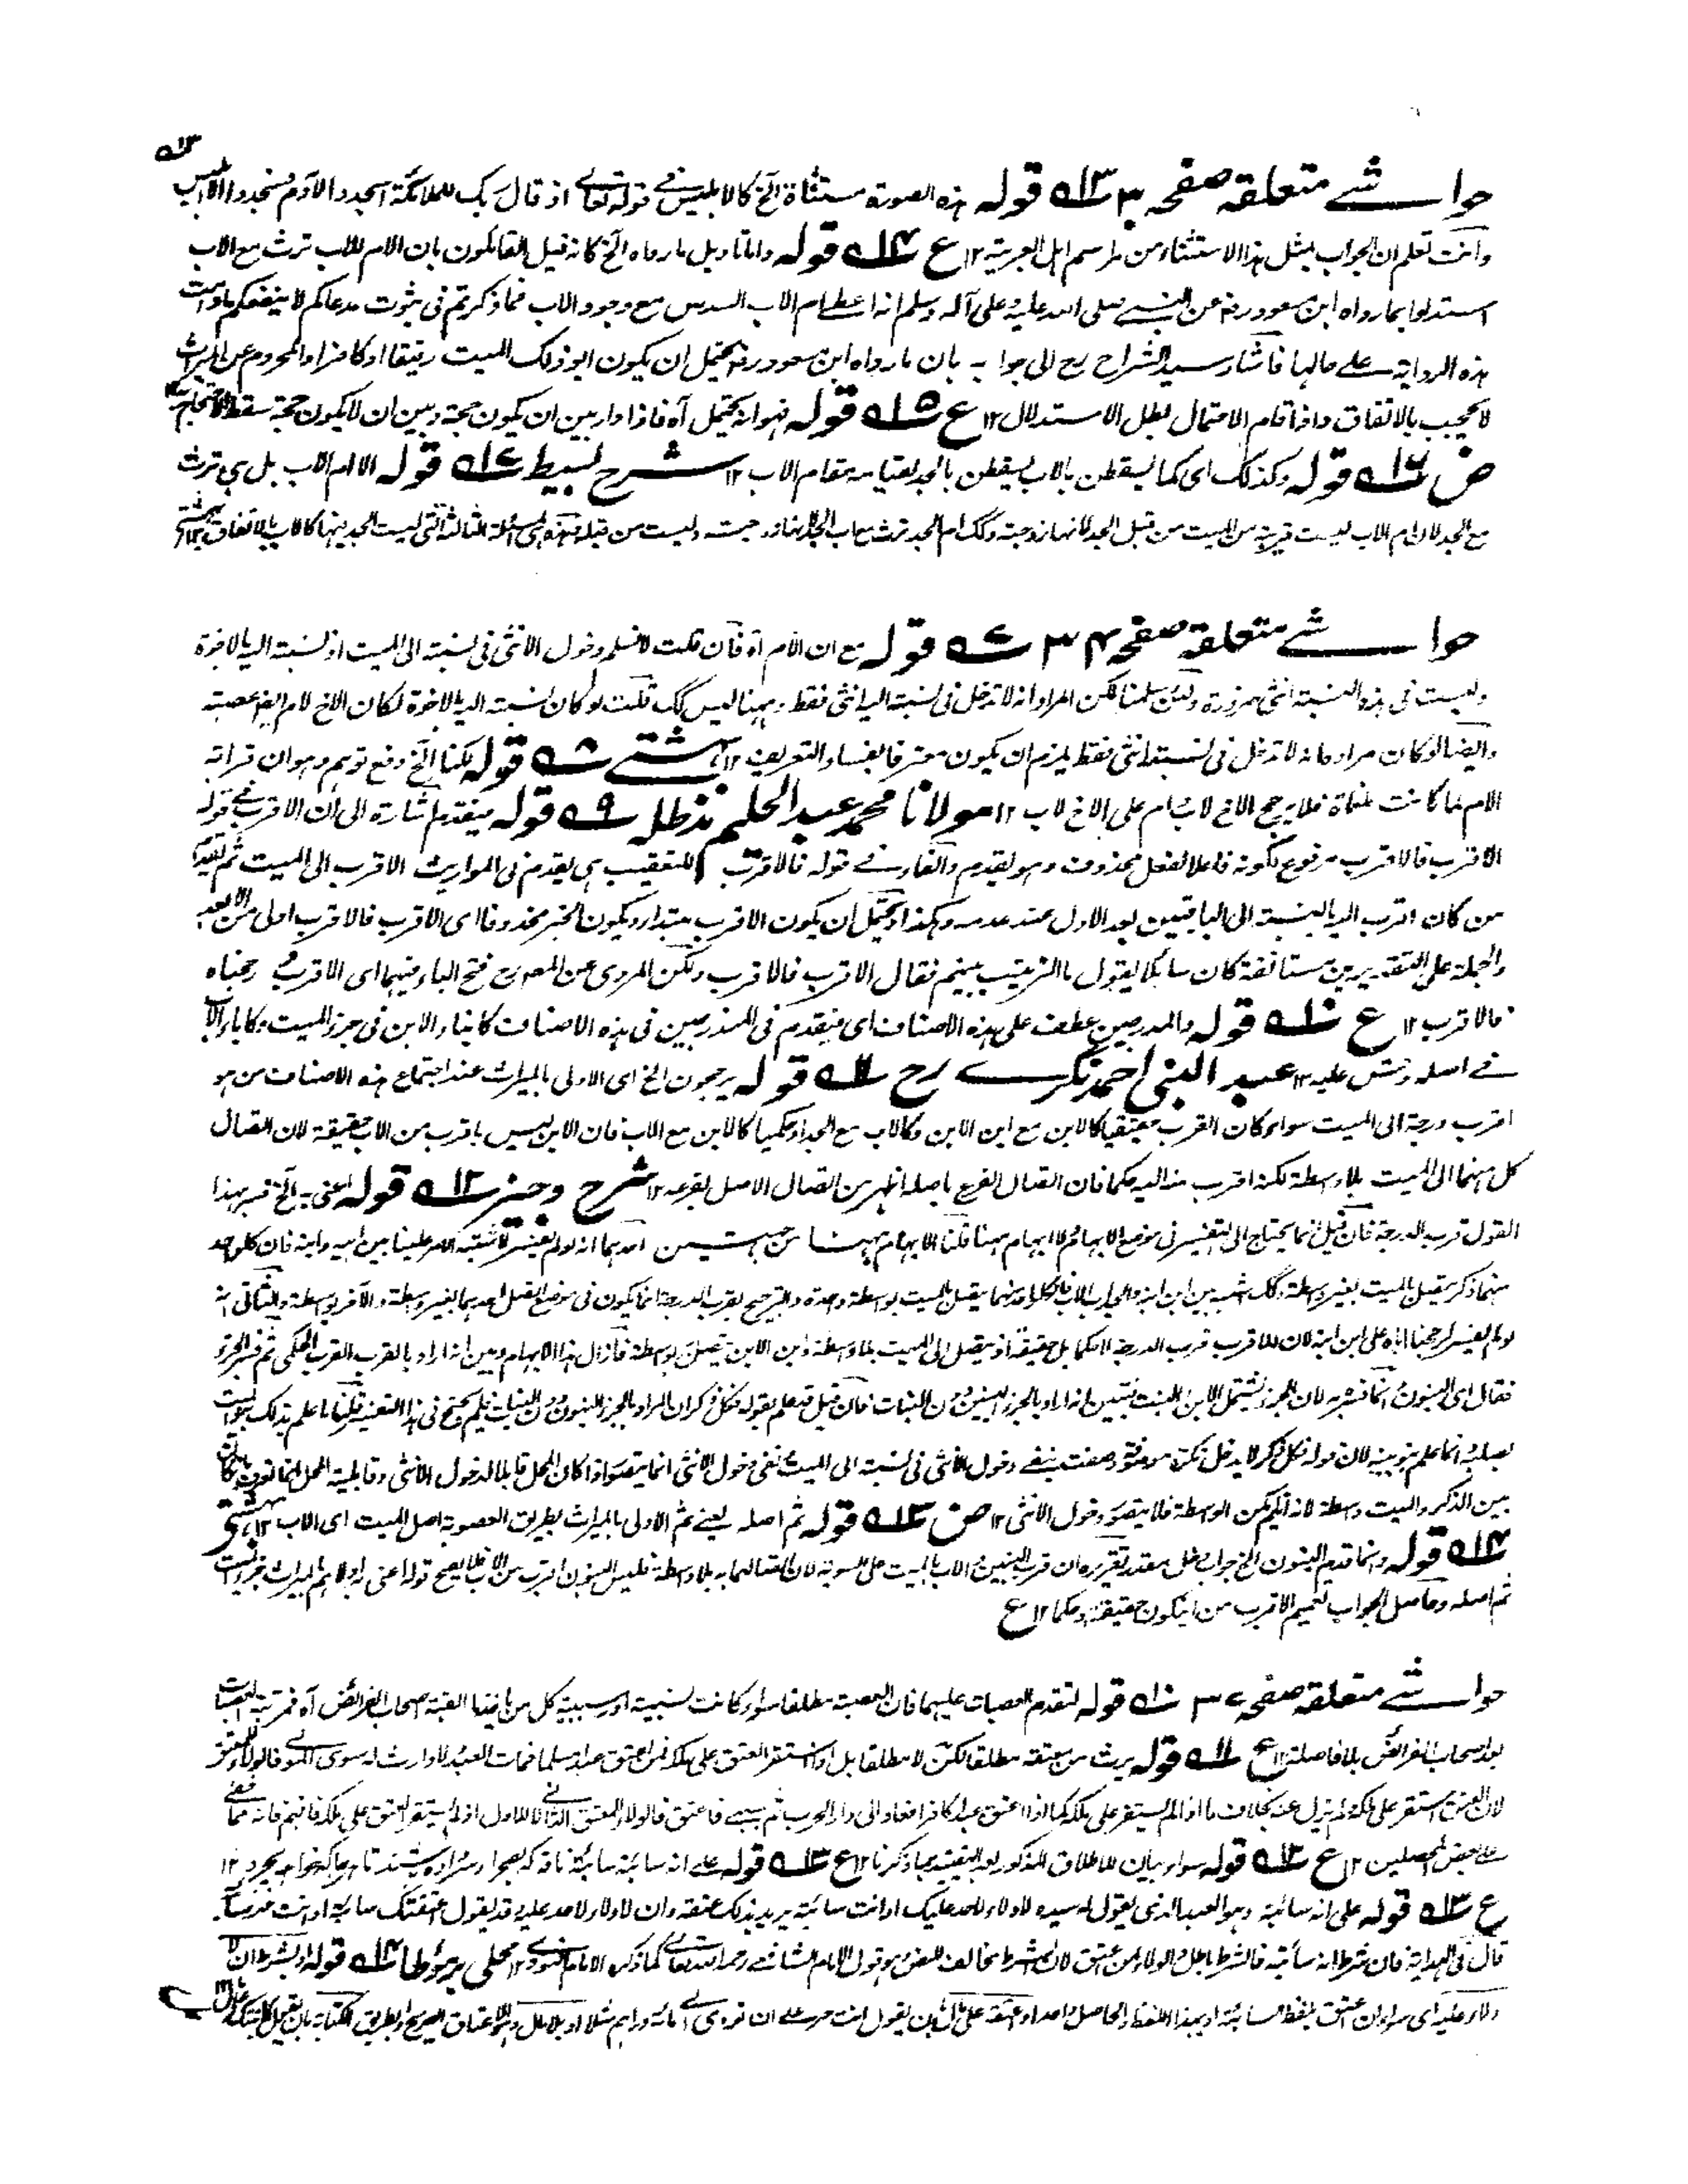 حواشي متعلقه صفحه ٣ ١٣ قوله هذه الصورة مستثناة الخ كالا بليس في قوله تعالى اذ قال ربك للملائكة اسجدوا لآدم فسجدوا الا ابليس
وانت تعلم ان الجواب بمثل هذا الاستثناء من مراسم اهل العربية ١٢ ع ١٤ قوله واما تاويل ما رواه الخ كانه قيل القائلون بان الام للاب ترث مع الاب
استدلوا بما رواه ابن مسعود رض عن النبي صلى الله عليه وعلى آله وسلم انه اعطى ام الاب السدس مع وجود الاب فما ذكرتم في ثبوت مدعاكم لا ينفعكم ما دامت
هذه الرواية على حالها فاشار سيد الشراح رح الى جوابه بان ما رواه ابن مسعود رض يحتمل ان يكون ابو ذلك الميت رقيقا او كافرا والمحروم عن الميراث
لا يحجب بالاتفاق واذا قام الاحتمال بطل الاستدلال ١٢ ع ١٥ قوله فهو انه يحتمل آه فاذا دار بين ان يكون حجة وبين ان لا يكون حجة سقط الاحتجاج به
ض ١٦ قوله وكذلك اى كما يسقطن بالاب يسقطن بالجد لقيامه مقام الاب ١٢ شرح بسيط ١٧ قوله الا ام الاب بل هي ترث
مع الجد لان ام الاب ليست قريبة من الميت من قبل الجد لانها زوجته وكذلك ام الجد ترث مع اب الجد لانها زوجته وليست من قبله فهذه هى المسئلة الثالثة التى ليست الجد فيها كالاب بالاتفاق ١٢ بهشتي
حواشي متعلقه صفحه ٣٤ ٧ قوله مع ان الام آه فان قلت لا نسلم دخول الانثى في نسبته الى الميت اذ نسبته اليه بالاخوة
وليست فى هذه النسبة انثى ضرورة ولئن سلمنا لكن المراد انه لا تدخل فى نسبته اليه انثى فقط وههنا ليس كذلك قلت لو كان نسبته اليه بالاخوة لكان الاخ لام ايضا عصبة
وايضا لو كان مراده انه لا تدخل فى نسبته انثى فقط يلزم ان يكون معترفا بفساد التعريف ١٢ بهشتي ٨ قوله لكنا الخ دفع توهم وهو ان قرابة
الام لما كانت ملغاة فلا يرجح الاخ لاب وام على الاخ لاب ١٢ مولانا محمد عبد الحليم مدظله ٩ قوله فيقدم اشارة الى ان الاقرب في قوله
الاقرب فالاقرب مرفوع لكونه فاعلا لفعل محذوف وهو يقدم والفاء في قوله فالاقرب للتعقيب اى يقدم فى المواريث الاقرب الى الميت ثم يقدم
من كان اقرب اليه بالنسبة الى الباقيين بعد الاول عند عدمه وهكذا ويحتمل ان يكون الاقرب مبتدأ ويكون الخبر محذوفا اى الاقرب فالاقرب اولى من الابعد
والجملة على التقديرين مستانفة كان سائلا يقول ما الترتيب بينهم فقال الاقرب فالاقرب ولكن المروى عن المص رح فتح الباء فيهما اى الاقرب رجحناه
فالاقرب ١٢ ع ١٠ قوله والمدرجين عطف على هذه الاصناف اى فيقدم فى المندرجين فى هذه الاصناف كابناء الابن فى جزء الميت وكاباء الاب
في اصله وقس عليه ١٢ عبد النبى احمد نگري رح ١١ قوله يرجحون الخ اى الاولى بالميراث عند اجتماع هذه الاصناف من هو
اقرب درجة الى الميت سواء كان القرب حقيقيا كالابن مع ابن الابن وكالاب مع الجد او حكميا كالابن مع الاب فان الابن ليس باقرب من الاب حقيقة لان اتصال
كل منهما الى الميت بلا واسطة لكنه اقرب منه اليه حكما فان اتصال الفرع باصله اظهر من اتصال الاصل بفرعه ١٢ شرح وجيز ١٢ قوله اعنى به الخ فسر بهذا
القول قرب الدرجة فان قيل انما يحتاج الى التفسير فى موضع الابهام ولا ابهام ههنا قلنا الابهام ههنا من جهتين احدهما انه لو لم يفسر لاشتبه الامر علينا بين ابيه وابنه فان كل واحد
منهما ذكر يتصل بالميت بغير واسطة وكذلك اشتبه بين ابن ابنه والجد اب الاب فان كلا منهما يتصل بالميت بواسطة واحدة والترجيح بقرب الدرجة انما يكون فى موضع اتصل احدهما بغير واسطة والآخر بواسطة والثانى انه
لو لم يفسر لرجحنا اباه على ابن ابنه لان للاب قرب الدرجة لا حكما بل حقيقة اذ يتصل الى الميت بلا واسطة وابن الابن يتصل بواسطة فازال هذا الابهام وبين انه اراد بالقرب القرب الحكمى ثم فسر الجزء
فقال اى البنون انما فسر به لان الجزء يشتمل الابن والبنت فتبين انه اراد بالجزء البنين دون البنات فان قيل
بين الذكر والميت واسطة لانه اذا لم يكن الواسطة فلا يتصور دخول الانثى ١٢ ض ١٣ قوله ثم اصله يعنى ثم الاولى بالميراث بطريق العصوبة اصل الميت اى الاب ١٢ بهشتي
١٤ قوله وانما قدم البنون الخ جواب دخل مقدر تقريره ان قرب البنين والاب بالميت على السوية لان اتصالهما به بلا واسطة فليس البنون اقرب من الاب فلا يصح قوله اعنى اولاهم بالميراث جزء الميت
ثم اصله وحاصل الجواب تعميم الاقرب من ان يكون حقيقة وحكما ١٢ ع
حواشي متعلقه صفحه ٣٧ ١٠ قوله لتقدم العصبات عليهما فان العصبة مطلقا سواء كانت نسبية او سببية كل من ياخذ ما ابقته اصحاب الفرائض آه فمرتبة العصبات
بعد اصحاب الفرائض بلا فاصلة ١٢ ع ١١ قوله يرث من معتقه مطلقا لكن لا مطلقا بل اذا استقر العتق على ملكه فمن اعتق عبدا مسلما فمات العبد لا وارث له سوى المولى فالولاء للمعتق
لان العتق استقر على ملكه ولم يزل عنه بخلاف ما اذا لم يستقر على ملكه كما اذا اعتق عبدا كافرا فعاد الى دار الحرب ثم سبي فاعتق فالولاء للمعتق الثاني لا للاول اذ لم يستقر العتق على ملكه فافهم فانه مما خفي
على بعض المحصلين ١٢ ع ١٢ قوله سواء بيان للاطلاق المذكور بعد التقييد بما ذكرنا ١٢ ع ١٣ قوله على انه سائبة سائبة ناقه كه بصحرا سر داده باشند تا هر جا كه خواهد بچرد ١٢
ع ١٣ قوله على انه سائبة وهو العبد الذى يقول له سيده لا ولاء لاحد عليك او انت سائبة يريد بذلك عتقه وان لا ولاء لاحد عليه قد يقول اعتقتك سائبة او انت حر سائبة
قال فى الهداية فان شرط انه سائبة فالشرط باطل والولاء لمن عتق لان الشرط مخالف للنص وهو قول الامام الشافعى رحمه الله تعالى كما ذكره الامام النووي ١٢ محلى برموطا ١٤ قوله او بشرط ان لا
ولاء عليه اى سواء ان عتق بلفظ السائبة او بهذا اللفظ والحاصل واحد او عتقه على مال بان يقول انت حر على ان تودى الي مائة دراهم مثلا او بلا مال